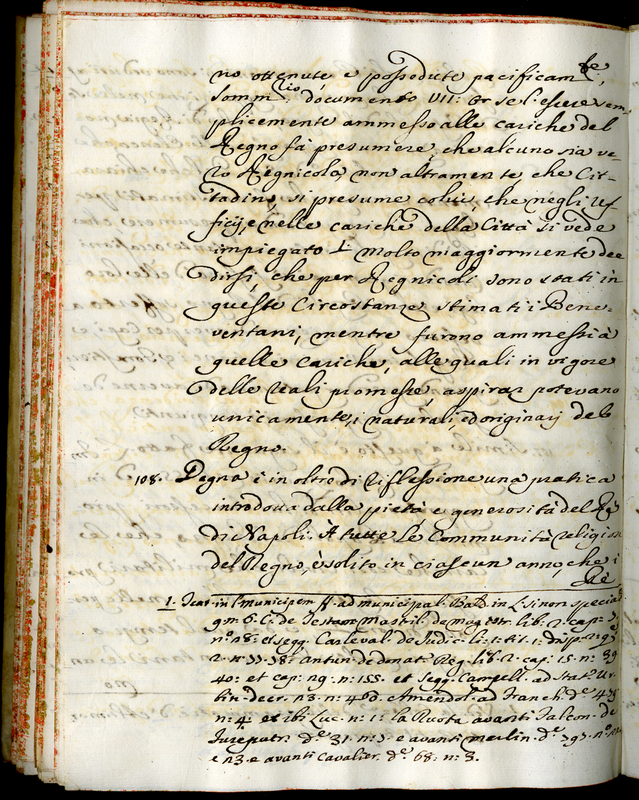 no ottenute e possedute pacificam.te,
Somm.rio documento VII: Or se l'essere sem
plicemente ammesso alle cariche del
Regno fà presumere, che alcuno sia ve-
ro Regnicolo, non altramente che Cit-
tadino, si presume colui, che negli Uf-
ficij, e nelle cariche della Città si vede
impiegato 1 molto maggiormente dee
dirsi, che per Regnicoli sono stati in
queste Circostanze stimati i Bene-
ventani, mentre furono ammessi à
quelle cariche, alle quali in vigore
delle reali promesse, aspirar potevano
unicamente, i naturali, ed originarj del
Regno.
108. Degna è in oltre di riflessione una pratica
introdotta dalla pietà e generosità del Rè
di Napoli. A tutte le Communità religiose
del Regno, è solito in ciascun anno, che i
Rè
1. Text in l. municipem ff. ad municipal. Bald. in L. si non speciali
9. m. 6. C. de Testam. Mastril. de magistr. lib. 2. cap.
n.o 18: et segg. Carleval. de Judic. l. 1. tit. 1. disp. 2.
2. n. 37. 38: de donat. Reg. lib. 2. cap. 15. n. 39
40: et cap. 29. n. 155. et segg. Campell. ad Stat. Ur-
bin. decr. n. 460. e Amendol. ad Franch. d.e 478
n. 4. et ibi Luc. n. 1: la Ruota avanti Falcon. de
Jurepatr. d.e 31. n. 3 e avanti Merlin. d.e 797. n.o
e n. 3. e avanti Cavalier. d.e 68: n. 3.